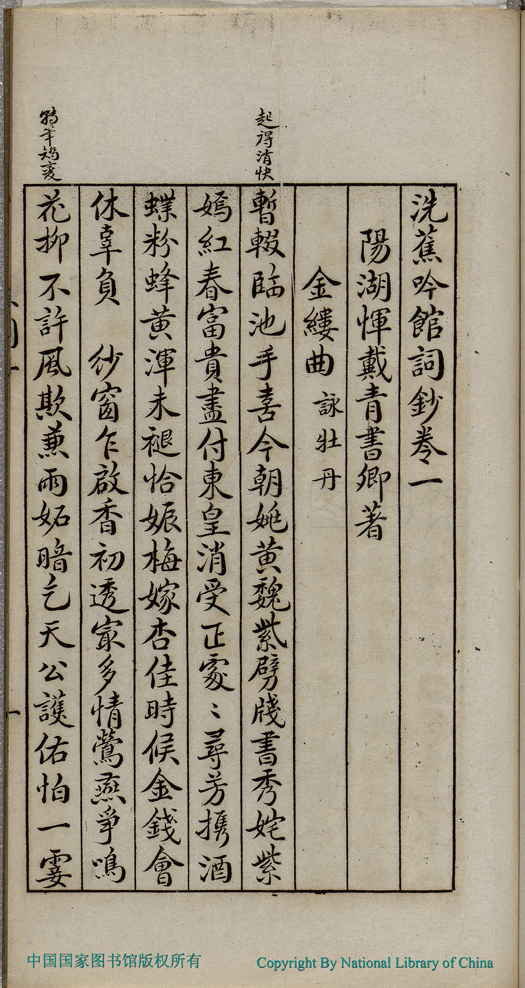 洗蕉吟館詞鈔卷一
陽湖惲戴青書卿著
金縷曲 詠牡丹
起得清快
暫輟臨池手喜今朝姚黃魏紫劈牋書秀姹紫
嫣紅春富貴盡付東皇消受正處〻尋芳攜酒
蝶粉蜂黃渾未褪恰娠梅嫁杏佳時候金錢會
休辜負 紗窗乍啟香初透寂多情鶯燕爭鳴
轉筆矯變
花抑不許風欺兼雨妬暗乞天公護佑怕一霎
中国国家图书馆版权所有
Copyright By National Library of China